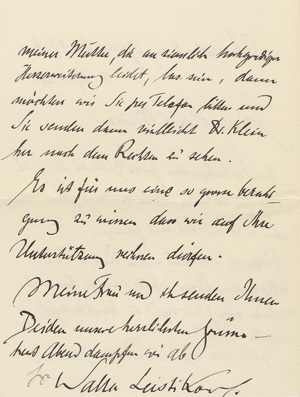 meiner Mutter, die an ziemlich hochgradiger
Herzerweiterung leidet, los sein, dann
möchten wir Sie per Telefon bitten und
Sie senden dann vielleicht Dr. Klein
her nach dem Rechten zu sehen.
Es ist für uns eine so grosse beruhi-
gung zu wissen dass wir auf Ihre
Unterstützung rechnen dürfen.
Meine Frau und ich senden Ihnen
Beiden unsere herzlichsten Grüsse
Abend dampfen wir ab
Ihr Walter Leistikow